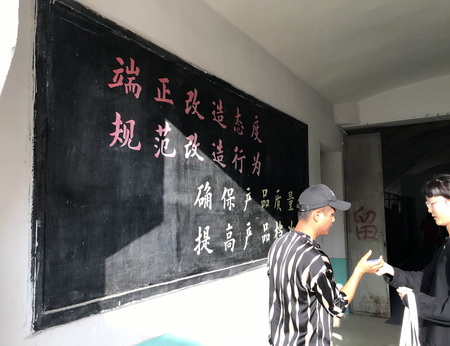 端正改造态度
规范改造行为
确保产品质量
提高产品
留